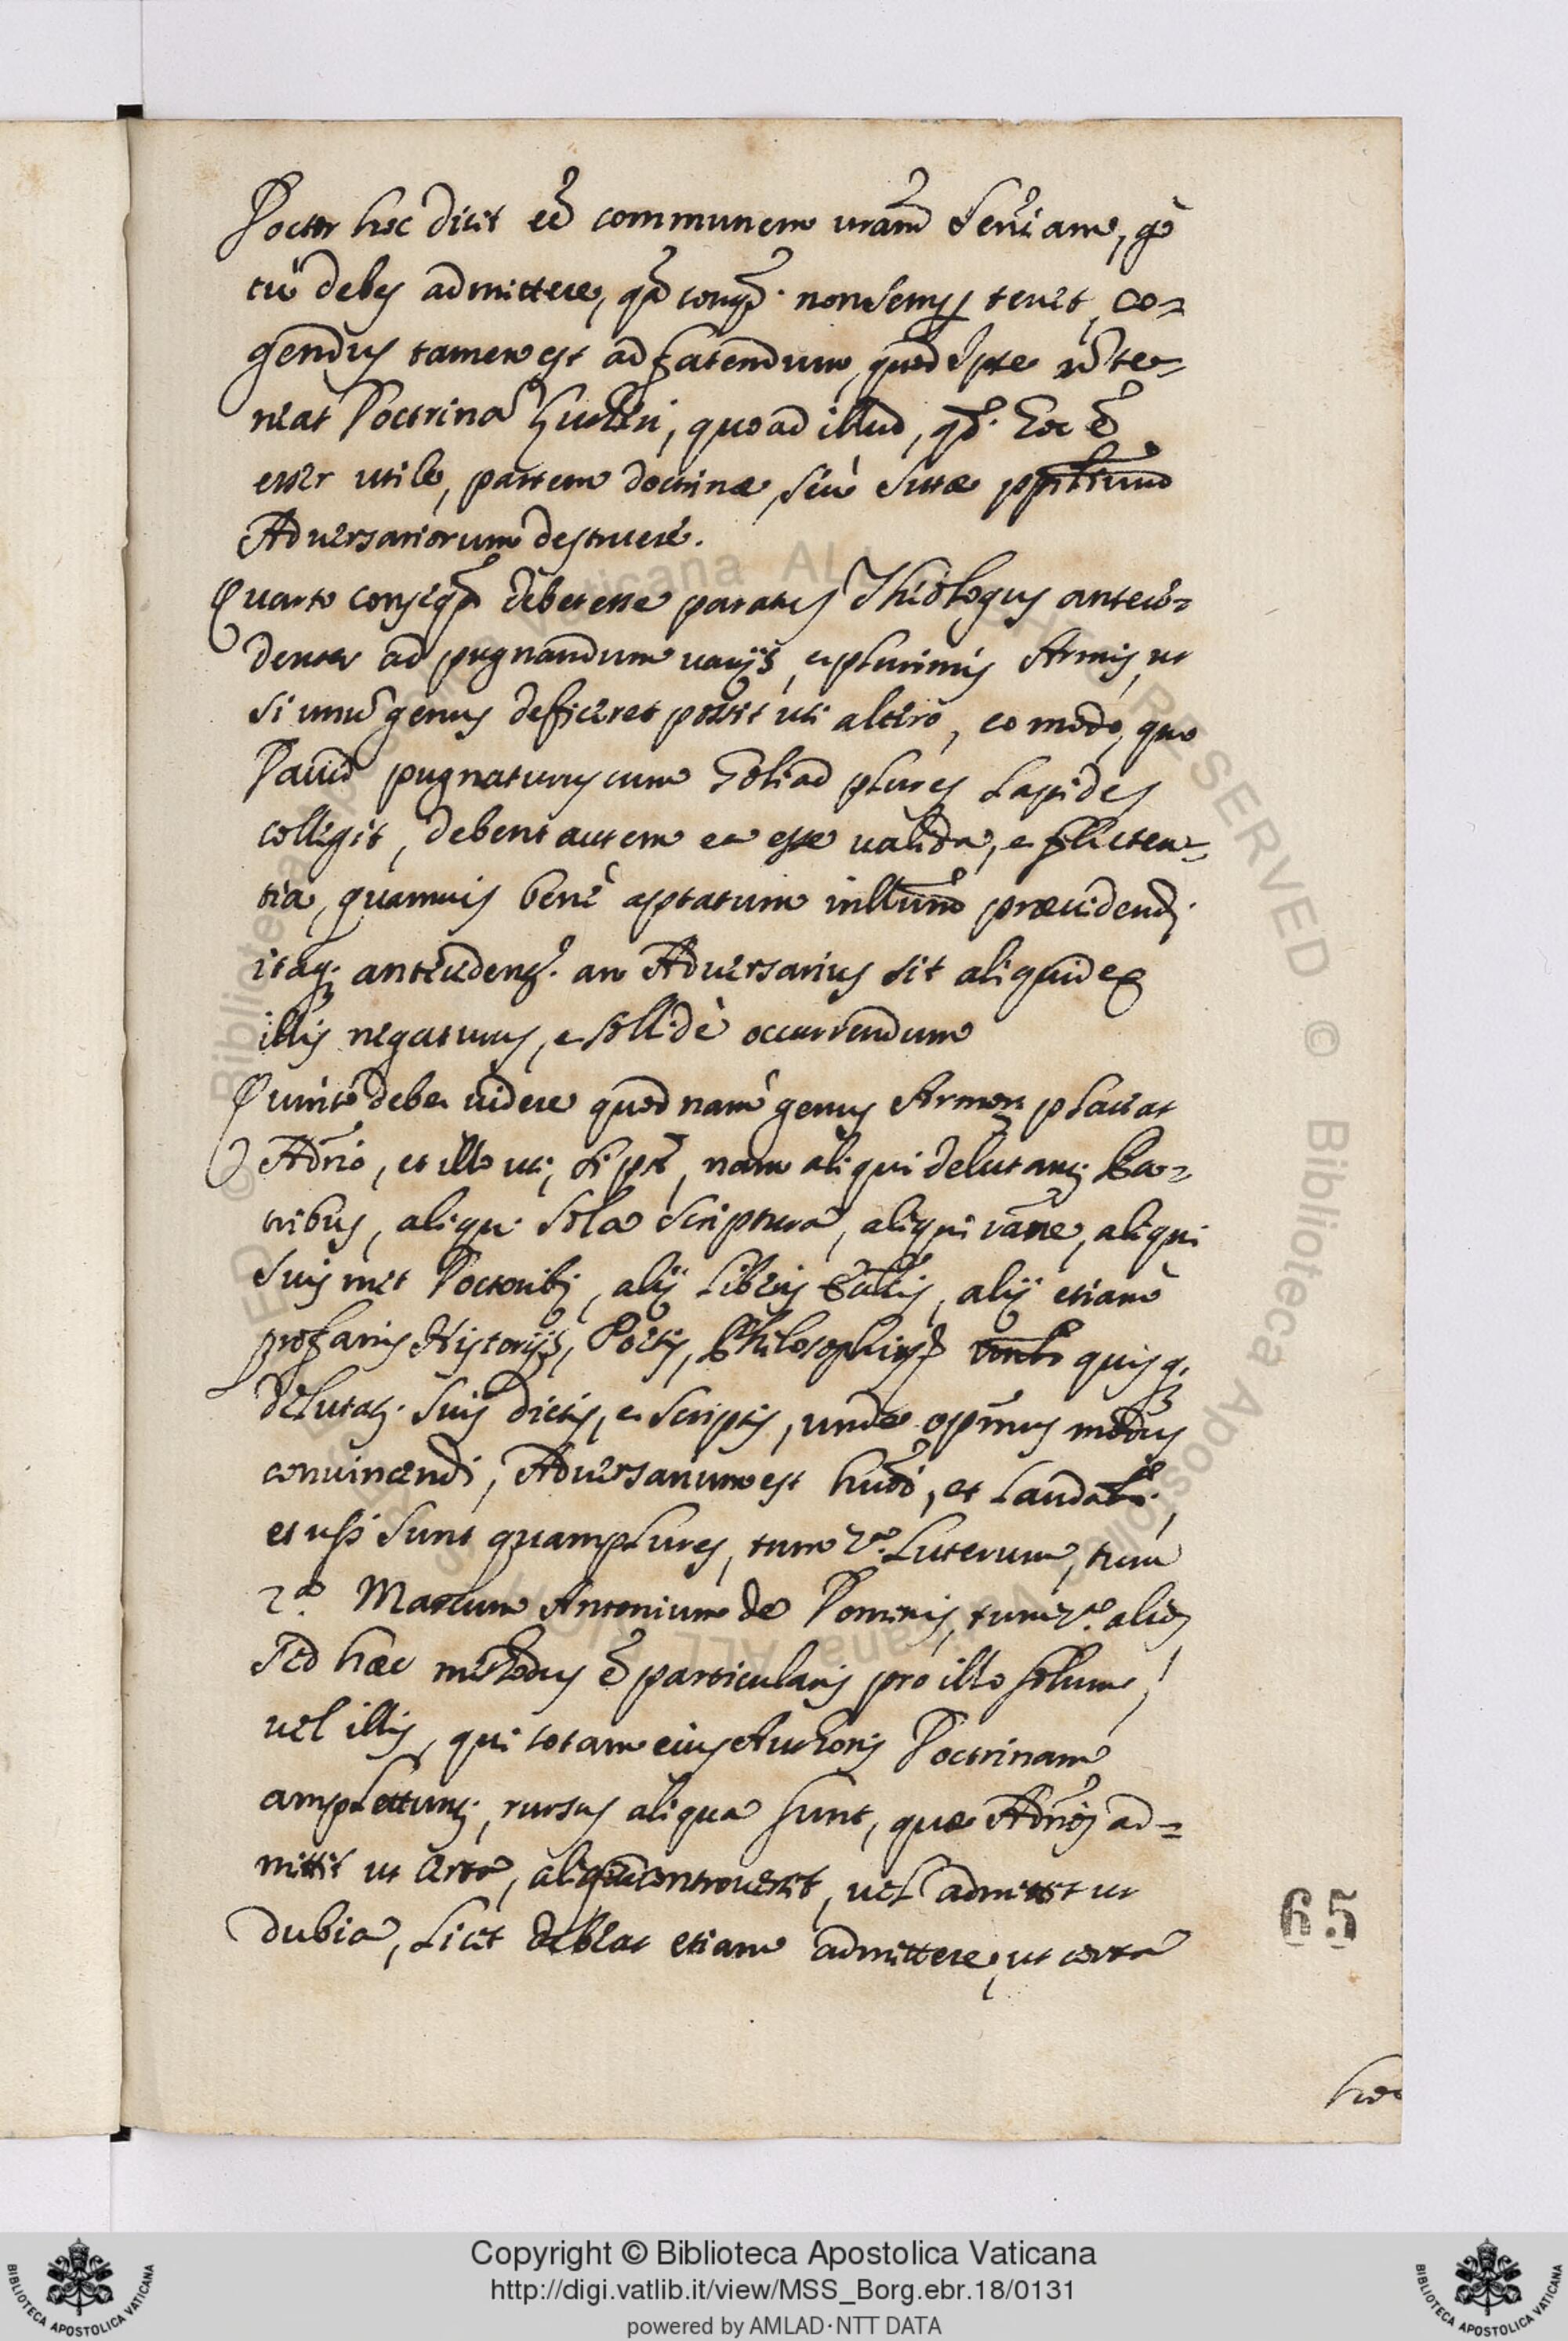 Doctor hoc dicit eē communem vram Senťiam, gº
tu debes admittere, qd non semp tenet, co-
gendus tamen est ad fatendum, quod iste nō te-
neat Doctrinā Lutheri, quo ad illud, qd. Hoc ē
esset utile, partem doctrinæ, seu sectæ
Adversariorum destruere.
Quarto debet esse paratus Theologus antece-
denter ad pugnandum varijs, et plurimis Armis, ut
si unū genus deficeret possit uti altero, eo modo, quo
David pugnaturus cum Goliad plures Lapides
colligit, debent autem ea esse valida, et
tia, quamvis benè aptatum
itaq; an Adversarius sit aliquid ex
illis negaturus, et sollidè occurrendum
Quintò debet videre quod nam genus Armoꝝ placeat
Adrio, et illo uti, si pōt, nam aliqui delectantꝛ Pa-
tribus, aliqui sola Scriptura, aliqui rāne, aliqui
suis met Doctoribꝫ, alij Libris, alij etiam
profanis Historijs, Poetis, Philosophis quisq;
delectatꝛ suis dictis, et scriptis, unde opīmus modus
convincendi, Adversarium est, et
et usi sunt quamplures, tum Luterum, tum
Marcum Antonium de Dominis, tum alios
Sed hæc methodus ē particularis pro illo solum,
vel illis, qui totam eius Authoris Doctrinam
amplectuntꝛ, rursus aliqua sunt, quæ Adrios ad-
mittit ut certa, aliqua controvertit, vel admittit ut
dubia, licet debeat etiam admittere, ut certa
65
hoc
Copyright © Biblioteca Apostolica Vaticana
http://digi.vatlib.it/view/MSS_Borg.ebr.18/0131
powered by AMLAD·NTT DATA